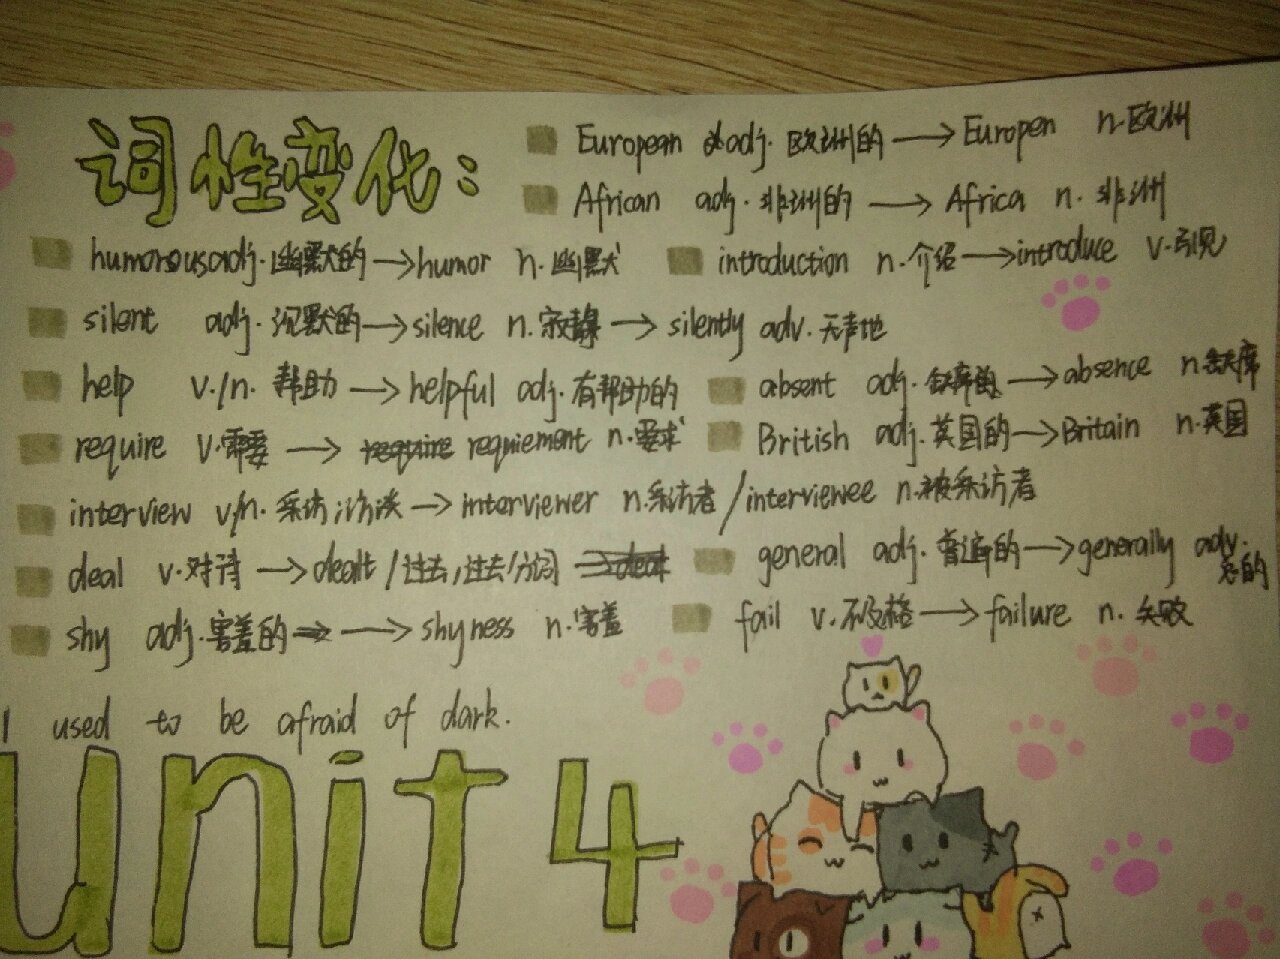 词性变化:
European adj. 欧洲的 → Europen n.欧洲
African adj. 非洲的 → Africa n. 非洲
humorous adj. 幽默的 → humor n. 幽默
introduction n. 介绍 → introduce v. 引见
silent adj. 沉默的 → silence n. 寂静 → silently adv. 无声地
help v./n. 帮助 → helpful adj. 有帮助的
absent adj. 缺席的 → absence n.缺席
require v.需要 → requiement n.要求
British adj. 英国的 → Britain n.英国
interview v/n. 采访;访谈 → interviewer n.采访者/interviewee n.被采访者
deal v.对待 → dealt/过去,过去分词
general adj. 普遍的 → generally adv. 总的
shy adj.害羞的 → shyness n.害羞
fail v. 不及格 → failure n. 失败
I used to be afraid of dark.
unit 4